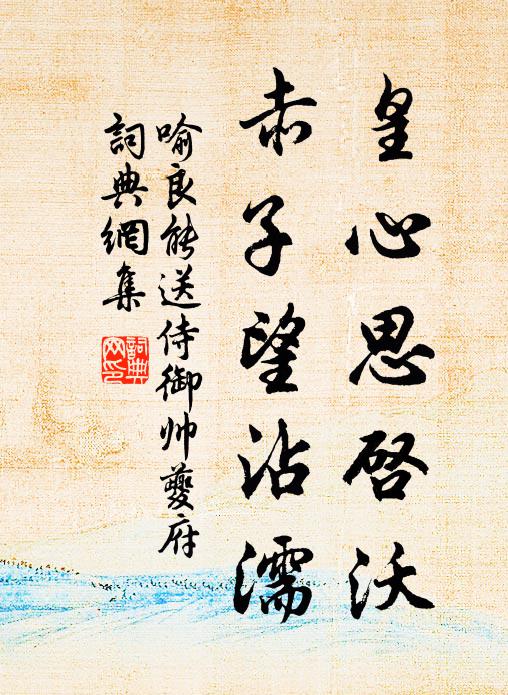 皇心思啓沃
赤子望沾濡
喻良能送侍御帅夔府
詞典網集
詞典
网印